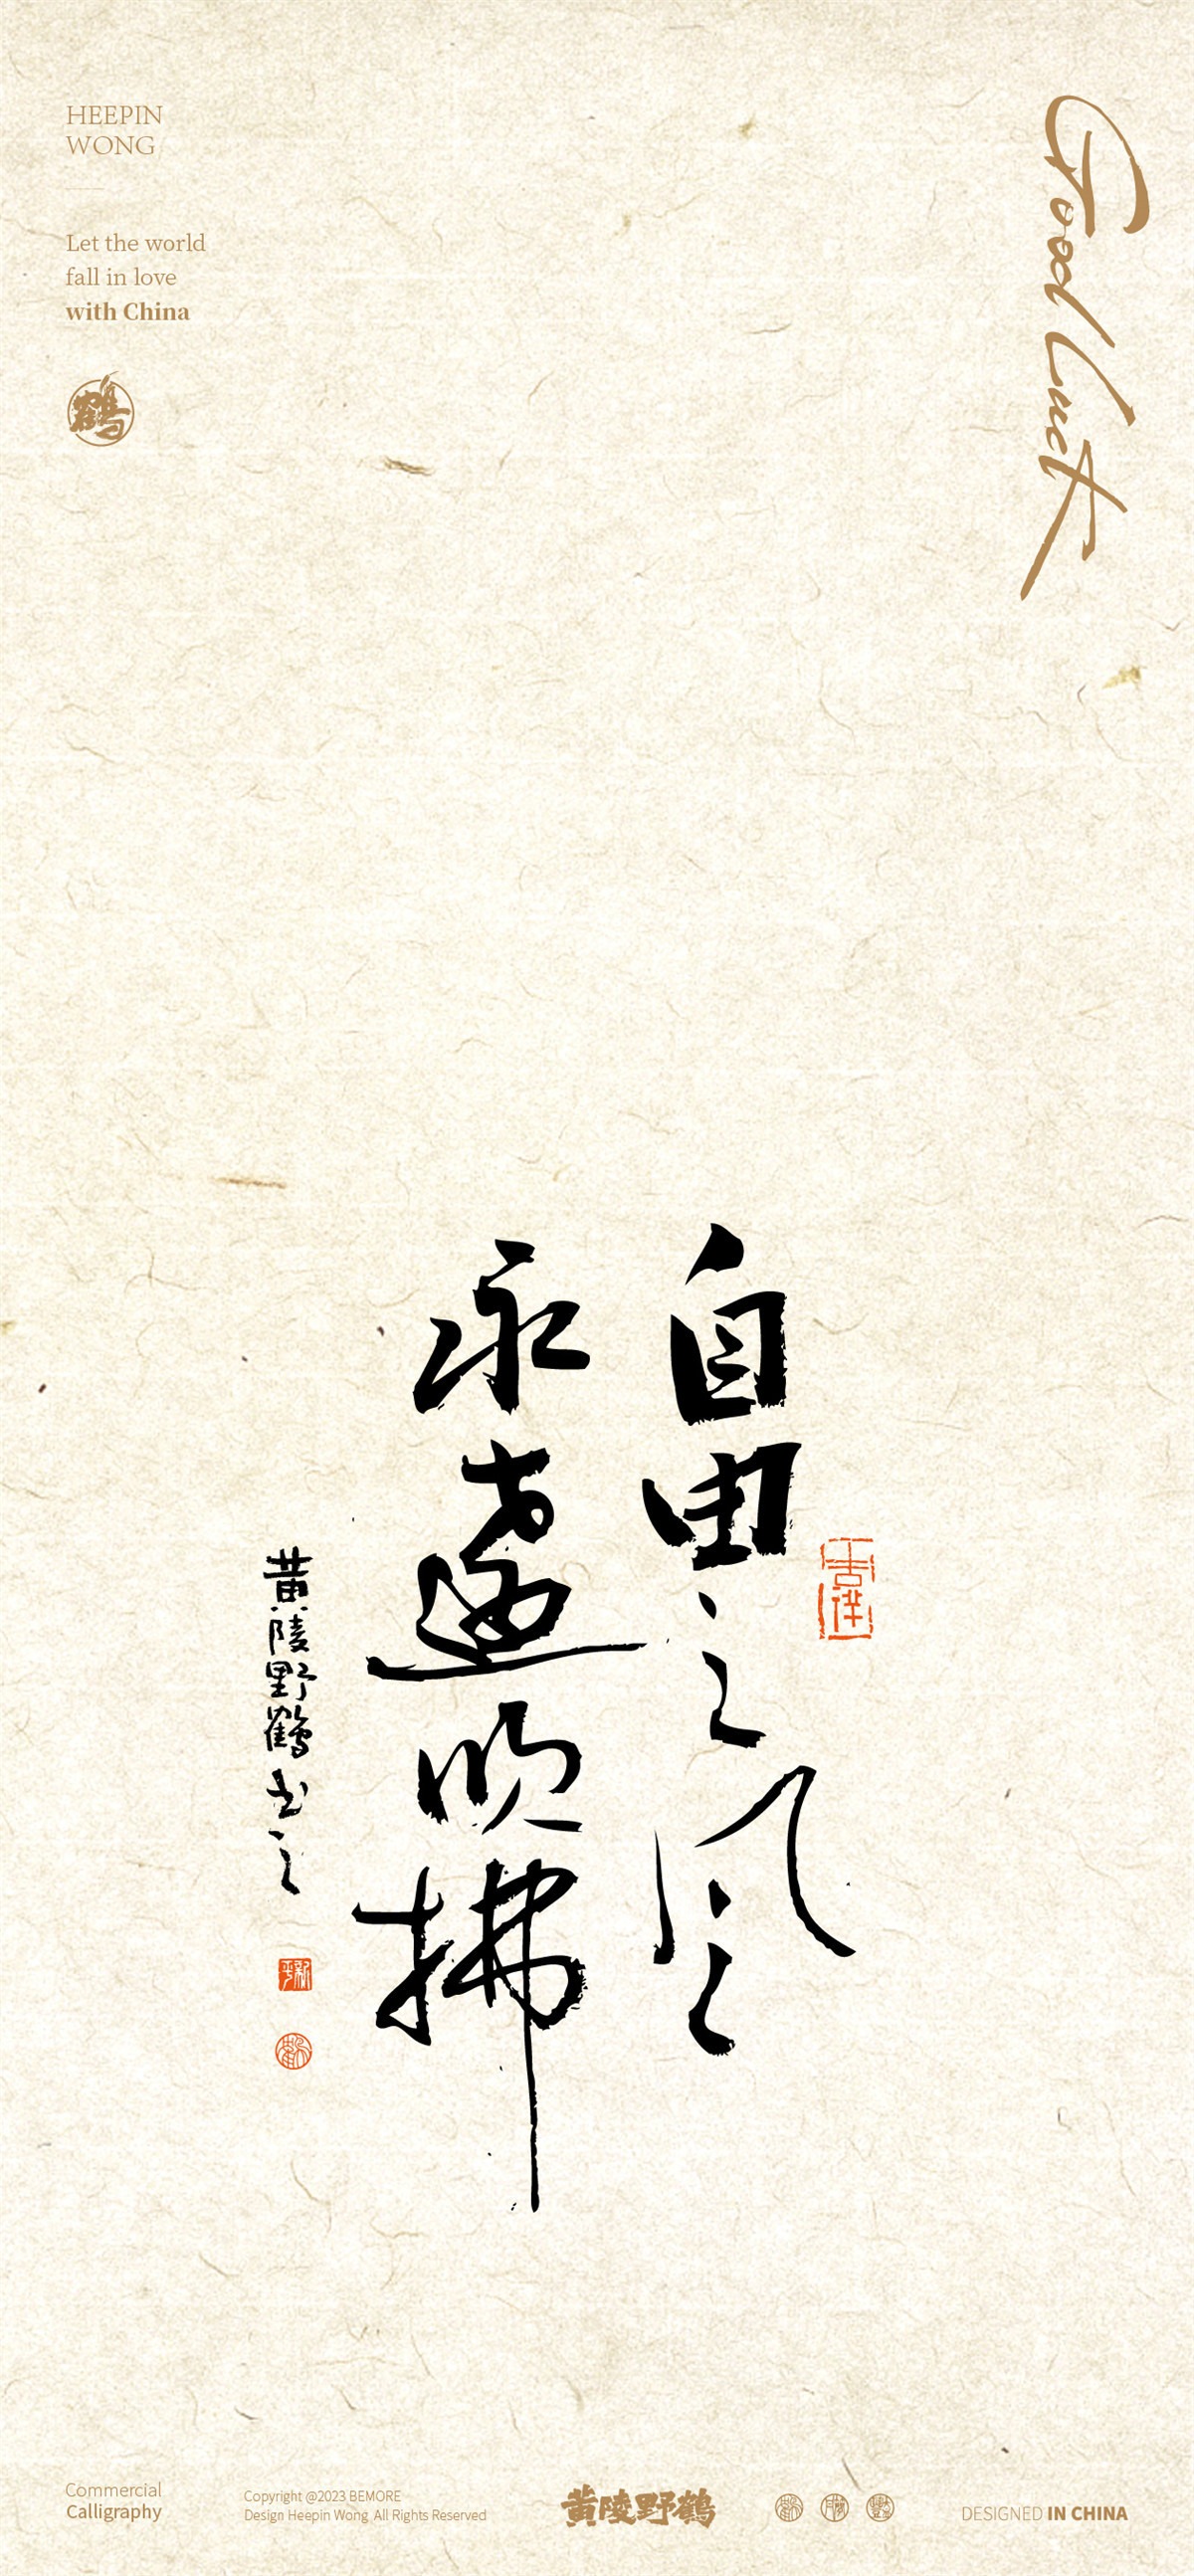 HEEPIN
WONG
Let the world
fall in love
with China
鶴
Good luck
自由之风
永远吹拂
黄陵野鹤书之
Commercial
Calligraphy
Copyright @2023 BEMORE
Design Heepin Wong. All Rights Reserved
黄陵野鶴
DESIGNED IN CHINA